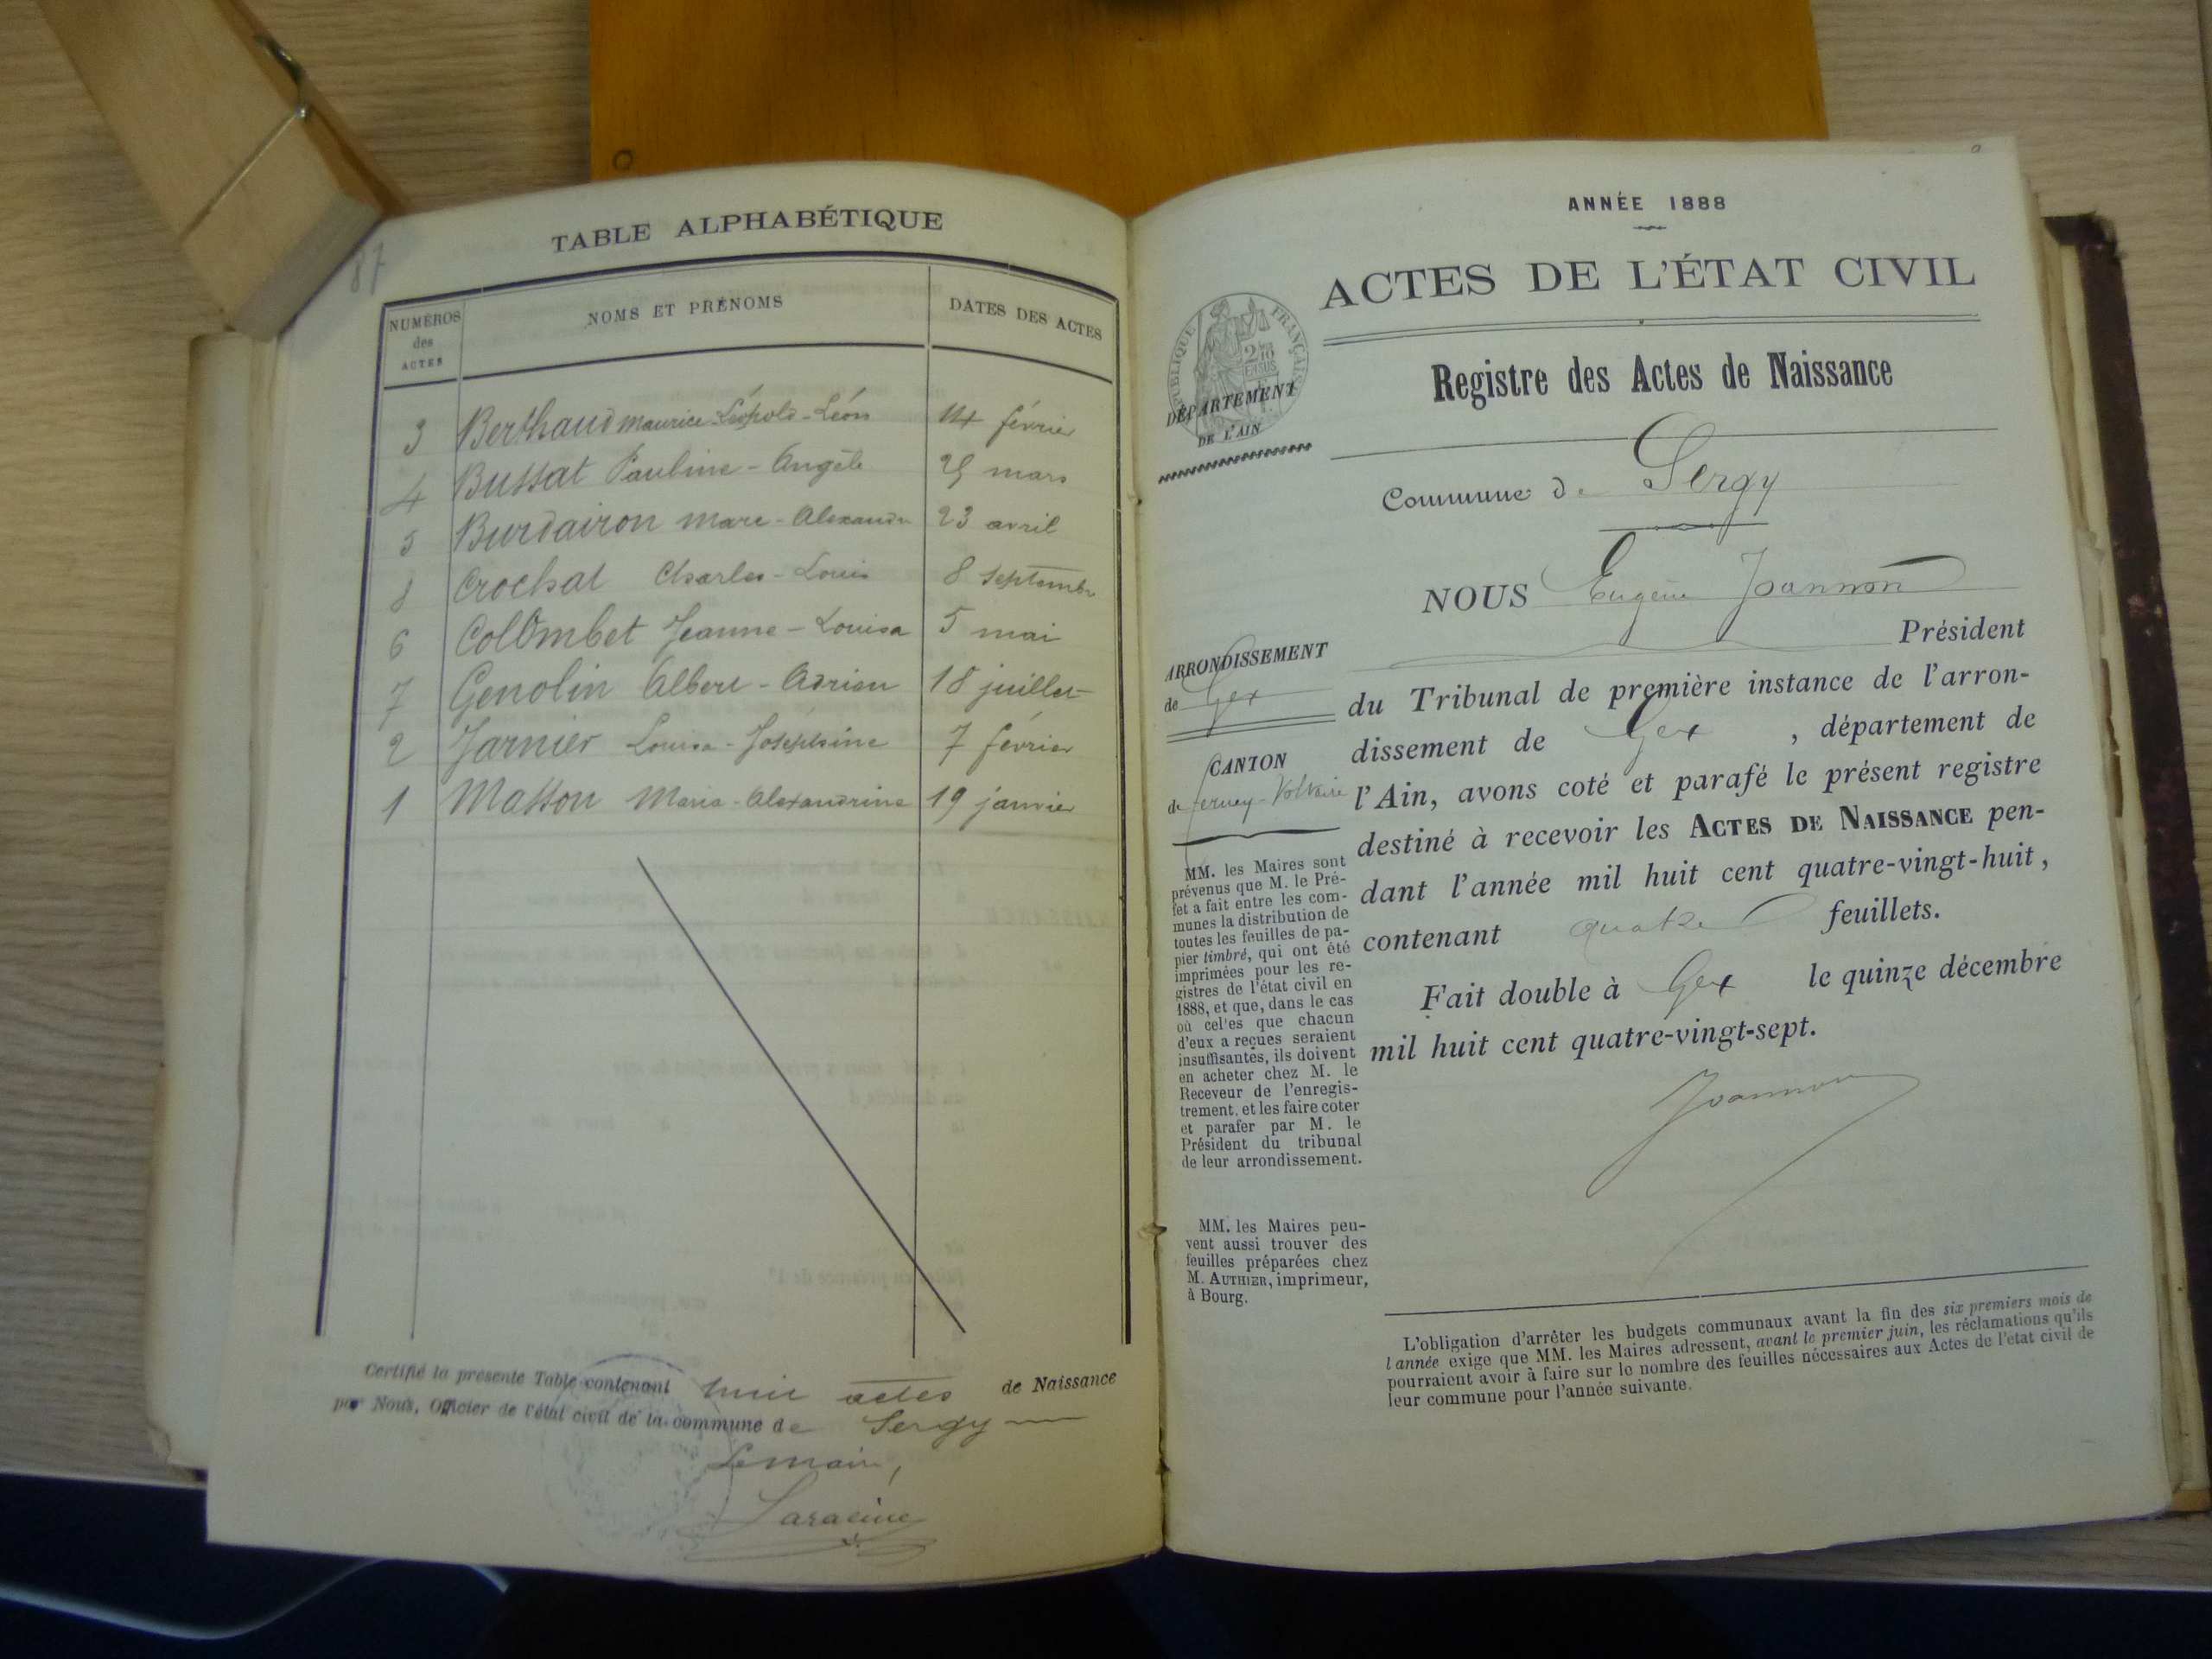 87
TABLE ALPHABÉTIQUE
NUMÉROS des ACTES
NOMS ET PRÉNOMS
DATES DES ACTES
3 Berthaud Maurice-Léopold-Léon 14 février
4 Bussat Pauline-Angèle mars
5 Burdairon Marc-Alexandre 23 avril
8 Crochat Charles-Louis 8 septembre
6 Colombet Jeanne-Louisa 5 mai
7 Genolin Albert-Adrien 18 juillet
2 Jarnier Louisa-Joséphine 7 février
1 Masson Maria-Alexandrine 19 janvier
Certifié la présente Table contenant huit actes de Naissance
par Nous, Officier de l'état civil de la commune de Sergy
Le maire,
ANNÉE 1888
ACTES DE L'ÉTAT CIVIL
RÉPUBLIQUE FRANÇAISE
DÉPARTEMENT
DE L'AIN
Registre des Actes de Naissance
Commune de Sergy
NOUS Eugène Joannon
Président
du Tribunal de première instance de l'arron-
dissement de Gex, département de
l'Ain, avons coté et parafé le présent registre
destiné à recevoir les ACTES DE NAISSANCE pen-
dant l'année mil huit cent quatre-vingt-huit,
contenant quatre feuillets.
Fait double à Gex le quinze décembre
mil huit cent quatre-vingt-sept.
Joannon
ARRONDISSEMENT
de Gex
CANTON
de Ferney-Voltaire
MM. les Maires sont
prévenus que M. le Pré-
fet a fait entre les com-
munes la distribution de
toutes les feuilles de pa-
pier timbré, qui ont été
imprimées pour les re-
gistres de l'état civil en
1888, et que, dans le cas
où cel'es que chacun
d'eux a reçues seraient
insuffisantes, ils doivent
en acheter chez M. le
Receveur de l'enregis-
trement, et les faire coter
et parafer par M. le
Président du tribunal
de leur arrondissement.
MM. les Maires peu-
vent aussi trouver des
feuilles préparées chez
M. AUTHIER, imprimeur,
à Bourg.
L'obligation d'arrêter les budgets communaux avant la fin des six premiers mois de
l'année exige que MM. les Maires adressent, avant le premier juin, les réclamations qu'ils
pourraient avoir à faire sur le nombre des feuilles nécessaires aux Actes de l'état civil de
leur commune pour l'année suivante.